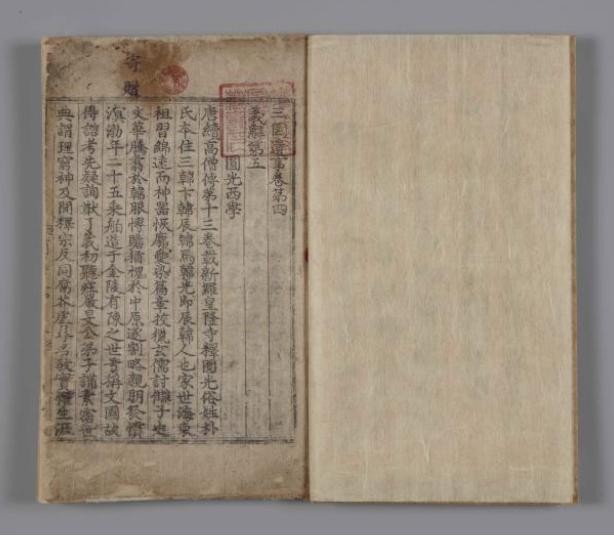 寄贈
三國遺事卷第四
義解第五
圓光西學
唐續高僧傳第十三卷載新羅皇隆寺釋圓光俗姓朴
氏本住三韓卞韓辰韓馬韓光即辰韓人也家世海東
祖習綿遠而神器恢廓愛染篇章挍獵玄儒討讎子史
文華騰翥於韓服博贍猶愧於中原遂割略親朋發憤
溟渤年二十五乘舶造于金陵有陳之世号稱文國故
得諮考先疑詢猷了義初聽莊嚴旻公弟子講素霑世
典謂理窮神及聞釋宗反同腐芥虛尋名教實懼生涯